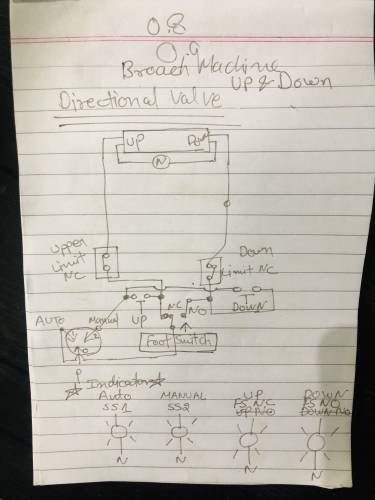 0.8
0.9
Breach Machine
UP & Down
Directional valve
UP Down
N
Upper
Limit
NC
Down
Limit NC
NC
NO
UP
DOWN
AUTO Manual
Foot Switch
P
Indicator
Auto MANUAL UP DOWN
SS1 SS2 FS NC FS NO
UP NO DOWN NO
N N N N